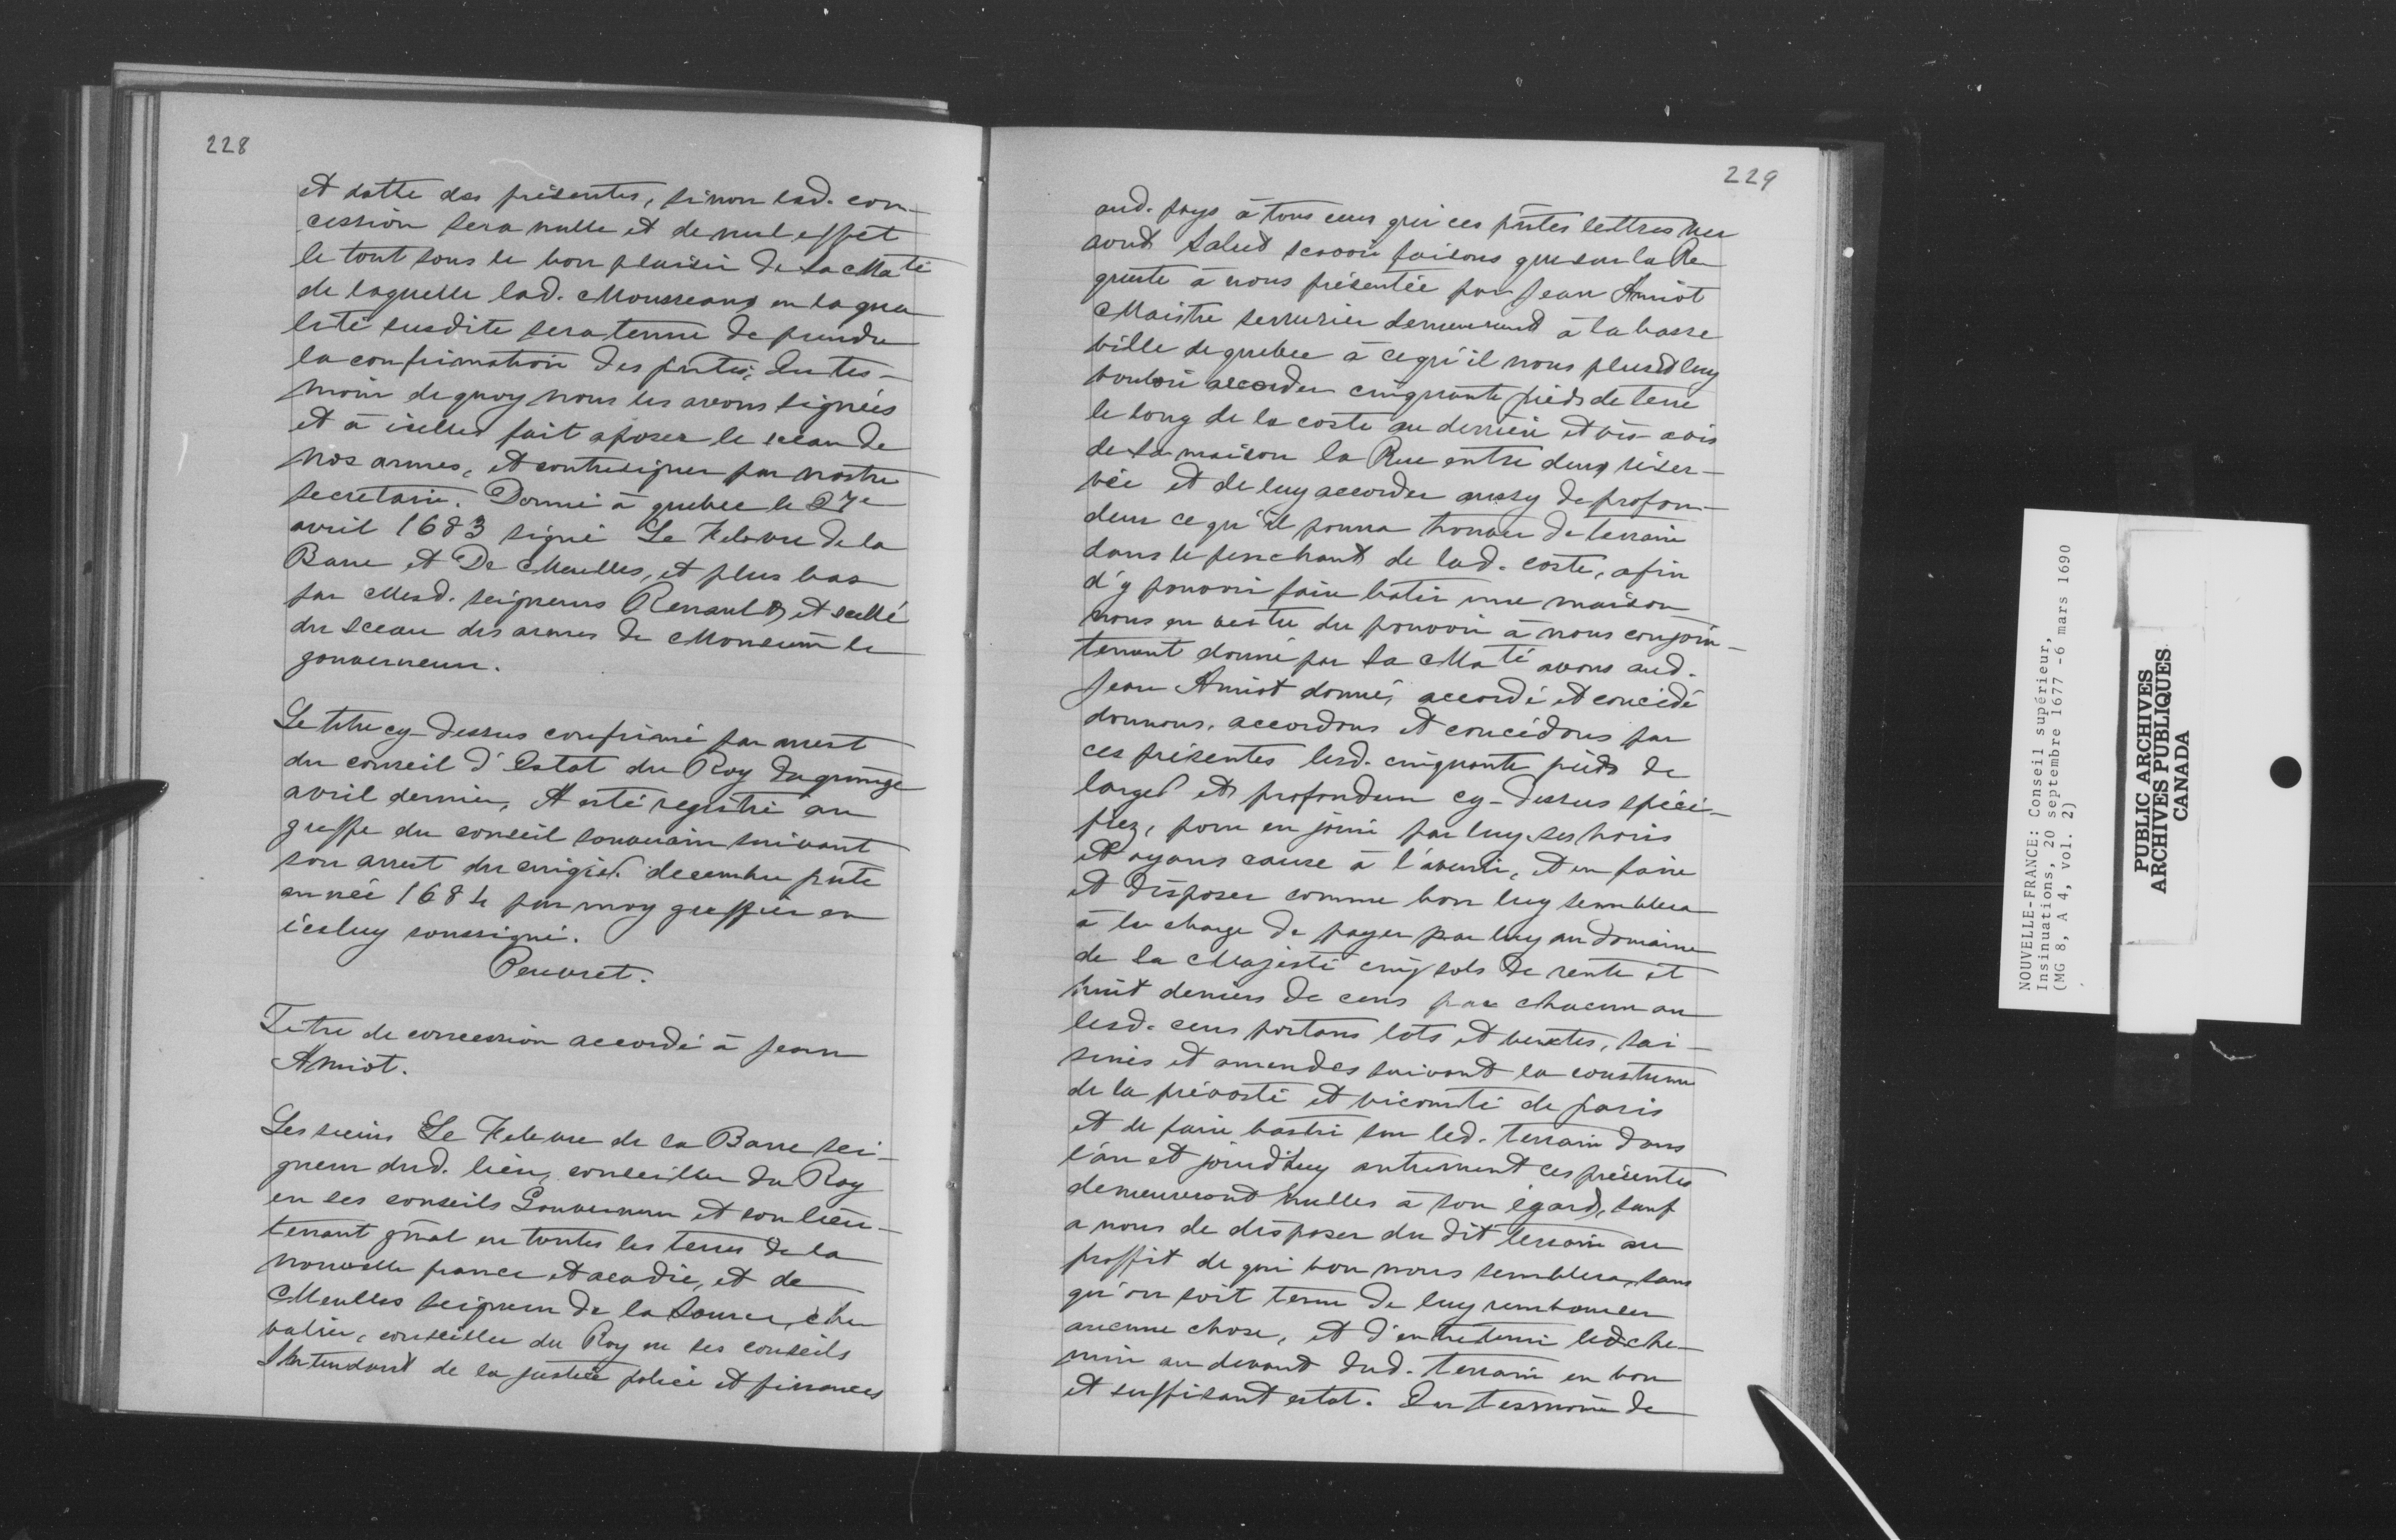 228
et datte des présentes, sinon lad. con-
cession sera nulle et de nul effet
le tout sous le bon plaisir de Sa Maté
de laquelle lad. Mousseaux en la qua
lité susdite sera tenue de prendre
la confirmation des pntes, En tes-
moin de quoy nous les avons signées
et à icelles fait aposer le sceau de
nos armes, et contresigner par nostre
secretaire. Donné à quebec le 27e
avril 1683 signé Le Febvre de la
Barre et De Meulles, et plus bas
par Mesd. seigneurs Renault, et scellé
du sceau des armes de Monseur le
gouverneur.
Le titre cy-dessus confirmé par arrest
du conseil d'Estat du Roy du quinze
avril dernier, A esté registré au
greffe du conseil souverain suivant
son arrest du cinqie. decembre pnte
année 1684 par moy greffier en
iceluy soussigné.
Peuvret.
Titre de concession accordé à Jean
Amiot.
Les sieurs Le Febvre de la Barre sei-
gneur dud. lieu, conseiller du Roy
en ses conseils Gouverneur et son lieu-
tenant gnal en toutes les terres de la
nouvelle france et acadie, et de
Meulles seigneur de la Source, che
valier, conseiller du Roy en ses conseils
Intendant de la justice police et finances
229
aud. pays à tous ceux qui ces pntes lettres ver
ront Salut scavoir faisons que sur la Re
queste à nous présentée par Jean Amiot
Maistre serrurier demeurant à la basse
ville de quebec à ce qu'il nous plust luy
vouloir accorder cinquante pieds de terre
le long de la coste au derrière et vis-avis
de sa maison la Rue entre deux réser-
vée et de luy accorder aussy de profon-
deur ce qu'il pourra trouver de terrain
dans le penchant de lad. coste, afin
d'y pouvoir faire batir une maison
nous en vertu du pouvoir à nous conjoin-
tement donné par Sa Maté avons aud.
Jean Amiot donné, accordé et concédé
donnons, accordons et concédons par
ces présentes lesd. cinquante pieds de
large et profondeur cy-dessus spéci-
fiez, pour en jouir par luy, ses hoirs
et ayans cause à l'avenir, et en faire
et disposer comme bon luy semblera
à la charge de payer par luy au domaine
de Sa Majesté cinq sols de rente et
huit deniers de cens par chacun an
lesd. cens portans lots et ventes, sai-
sines et amendes suivant la coustume
de la prévosté et vicomté de paris
et de faire bastir sur led. terrain dans
l'an et jour d'huy autrement ces présentes
demeureront nulles à son égard, sauf
a nous de disposer du dit terrain au
proffit de qui bon nous semblera, sans
qu'on soit tenu de luy rembourser
aucune chose, et d'entretenir led. che-
min au devant dud. terrain en bon
et suffisant estat. En tesmoin de
NOUVELLE-FRANCE: Conseil supérieur,
Insinuations, 20 septembre 1677 -6 mars 1690
(MG 8, A 4, vol. 2)
PUBLIC ARCHIVES
ARCHIVES PUBLIQUES
CANADA